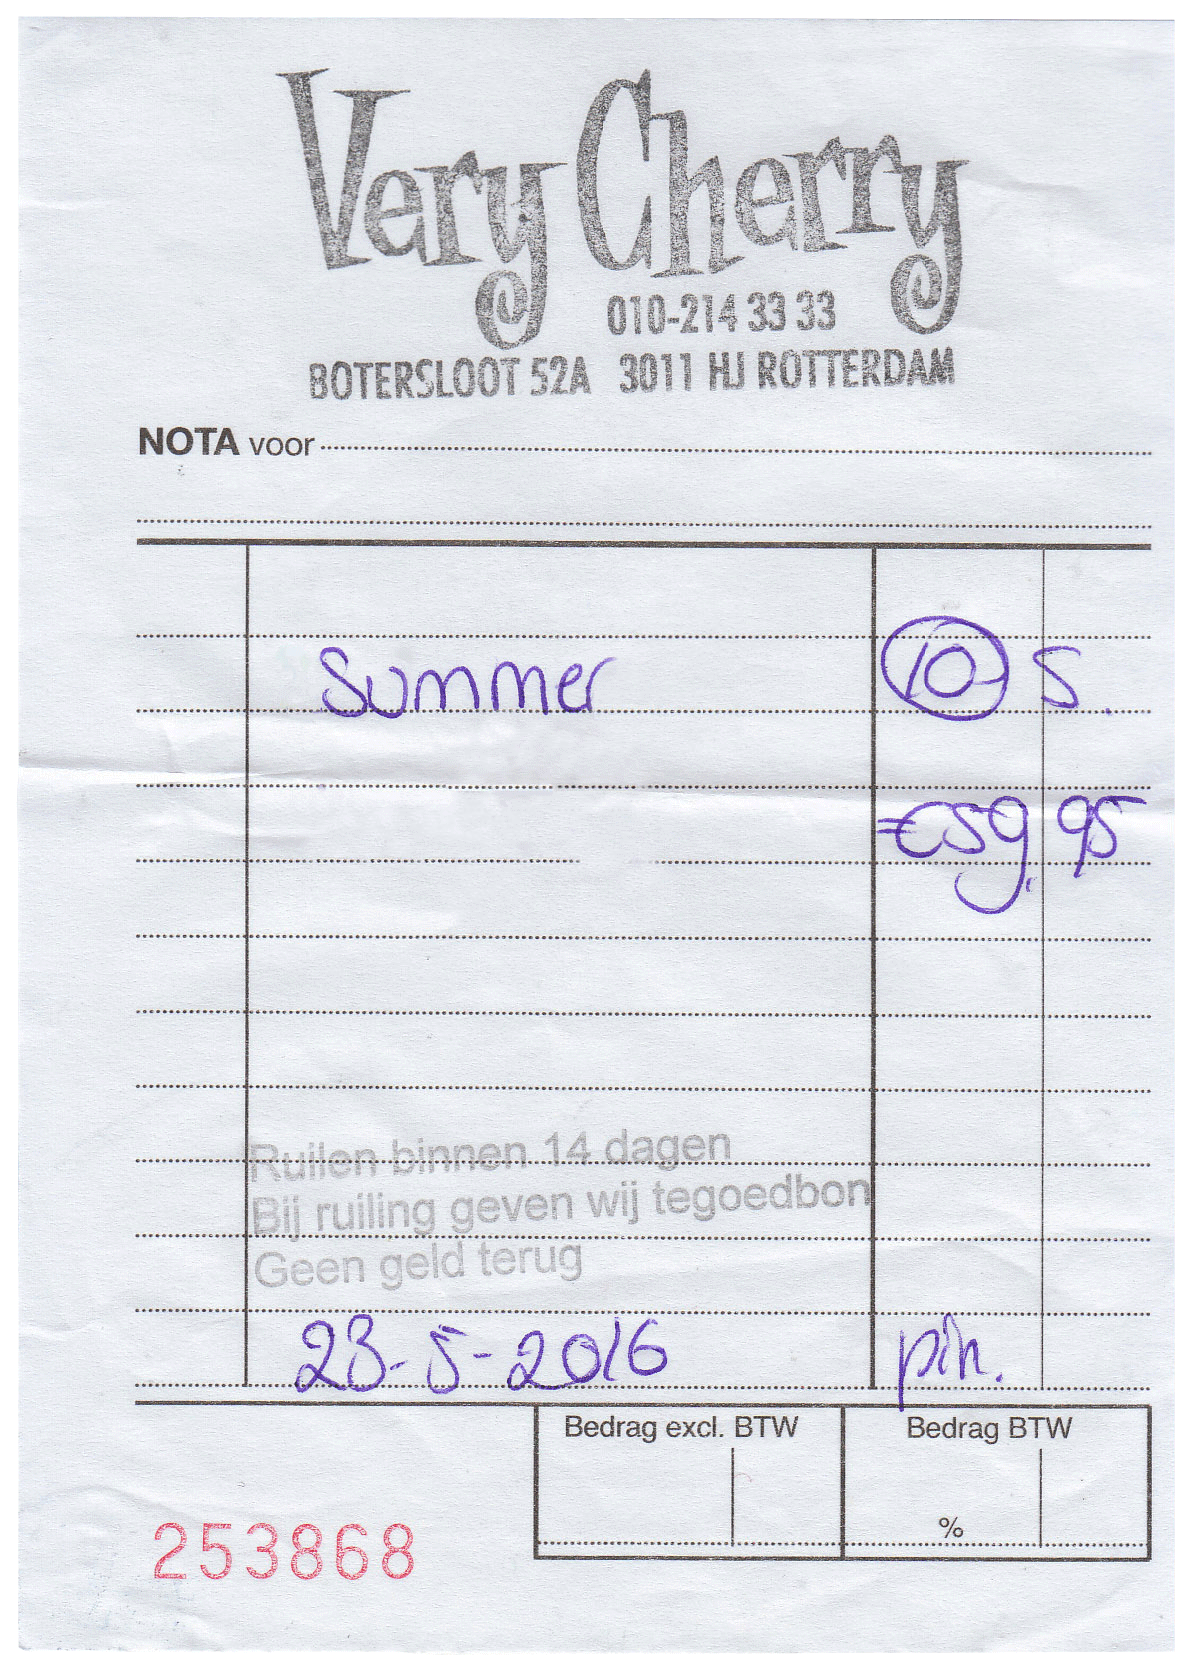 Very Cherry
010-214 33 33
BOTERSLOOT 52A 3011 HJ ROTTERDAM
NOTA voor
Summer 10 S.
€59,95
Ruilen binnen 14 dagen
Bij ruiling geven wij tegoedbon
Geen geld terug
23-5-2016 pin.
Bedrag excl. BTW Bedrag BTW
%
253868